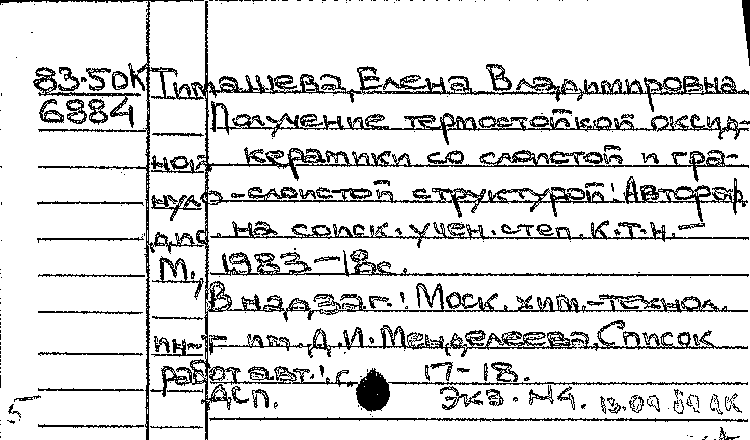 83-5 ОК Тимашева, Елена Владимировна
6884 Получение термостойкой оксид-
ной керамики со слоистой и гра-
нуло-слоистой структурой: Автореф.
дис. на соиск. учен. степ. к.т.н.—
М., 1983-18с.
В надзаг.: Моск. хим.-технол.
ин-т им. Д.И. Менделеева. Список
работ авт.: с. 17-18.
ДСП. Экз. N4. 13.09
5